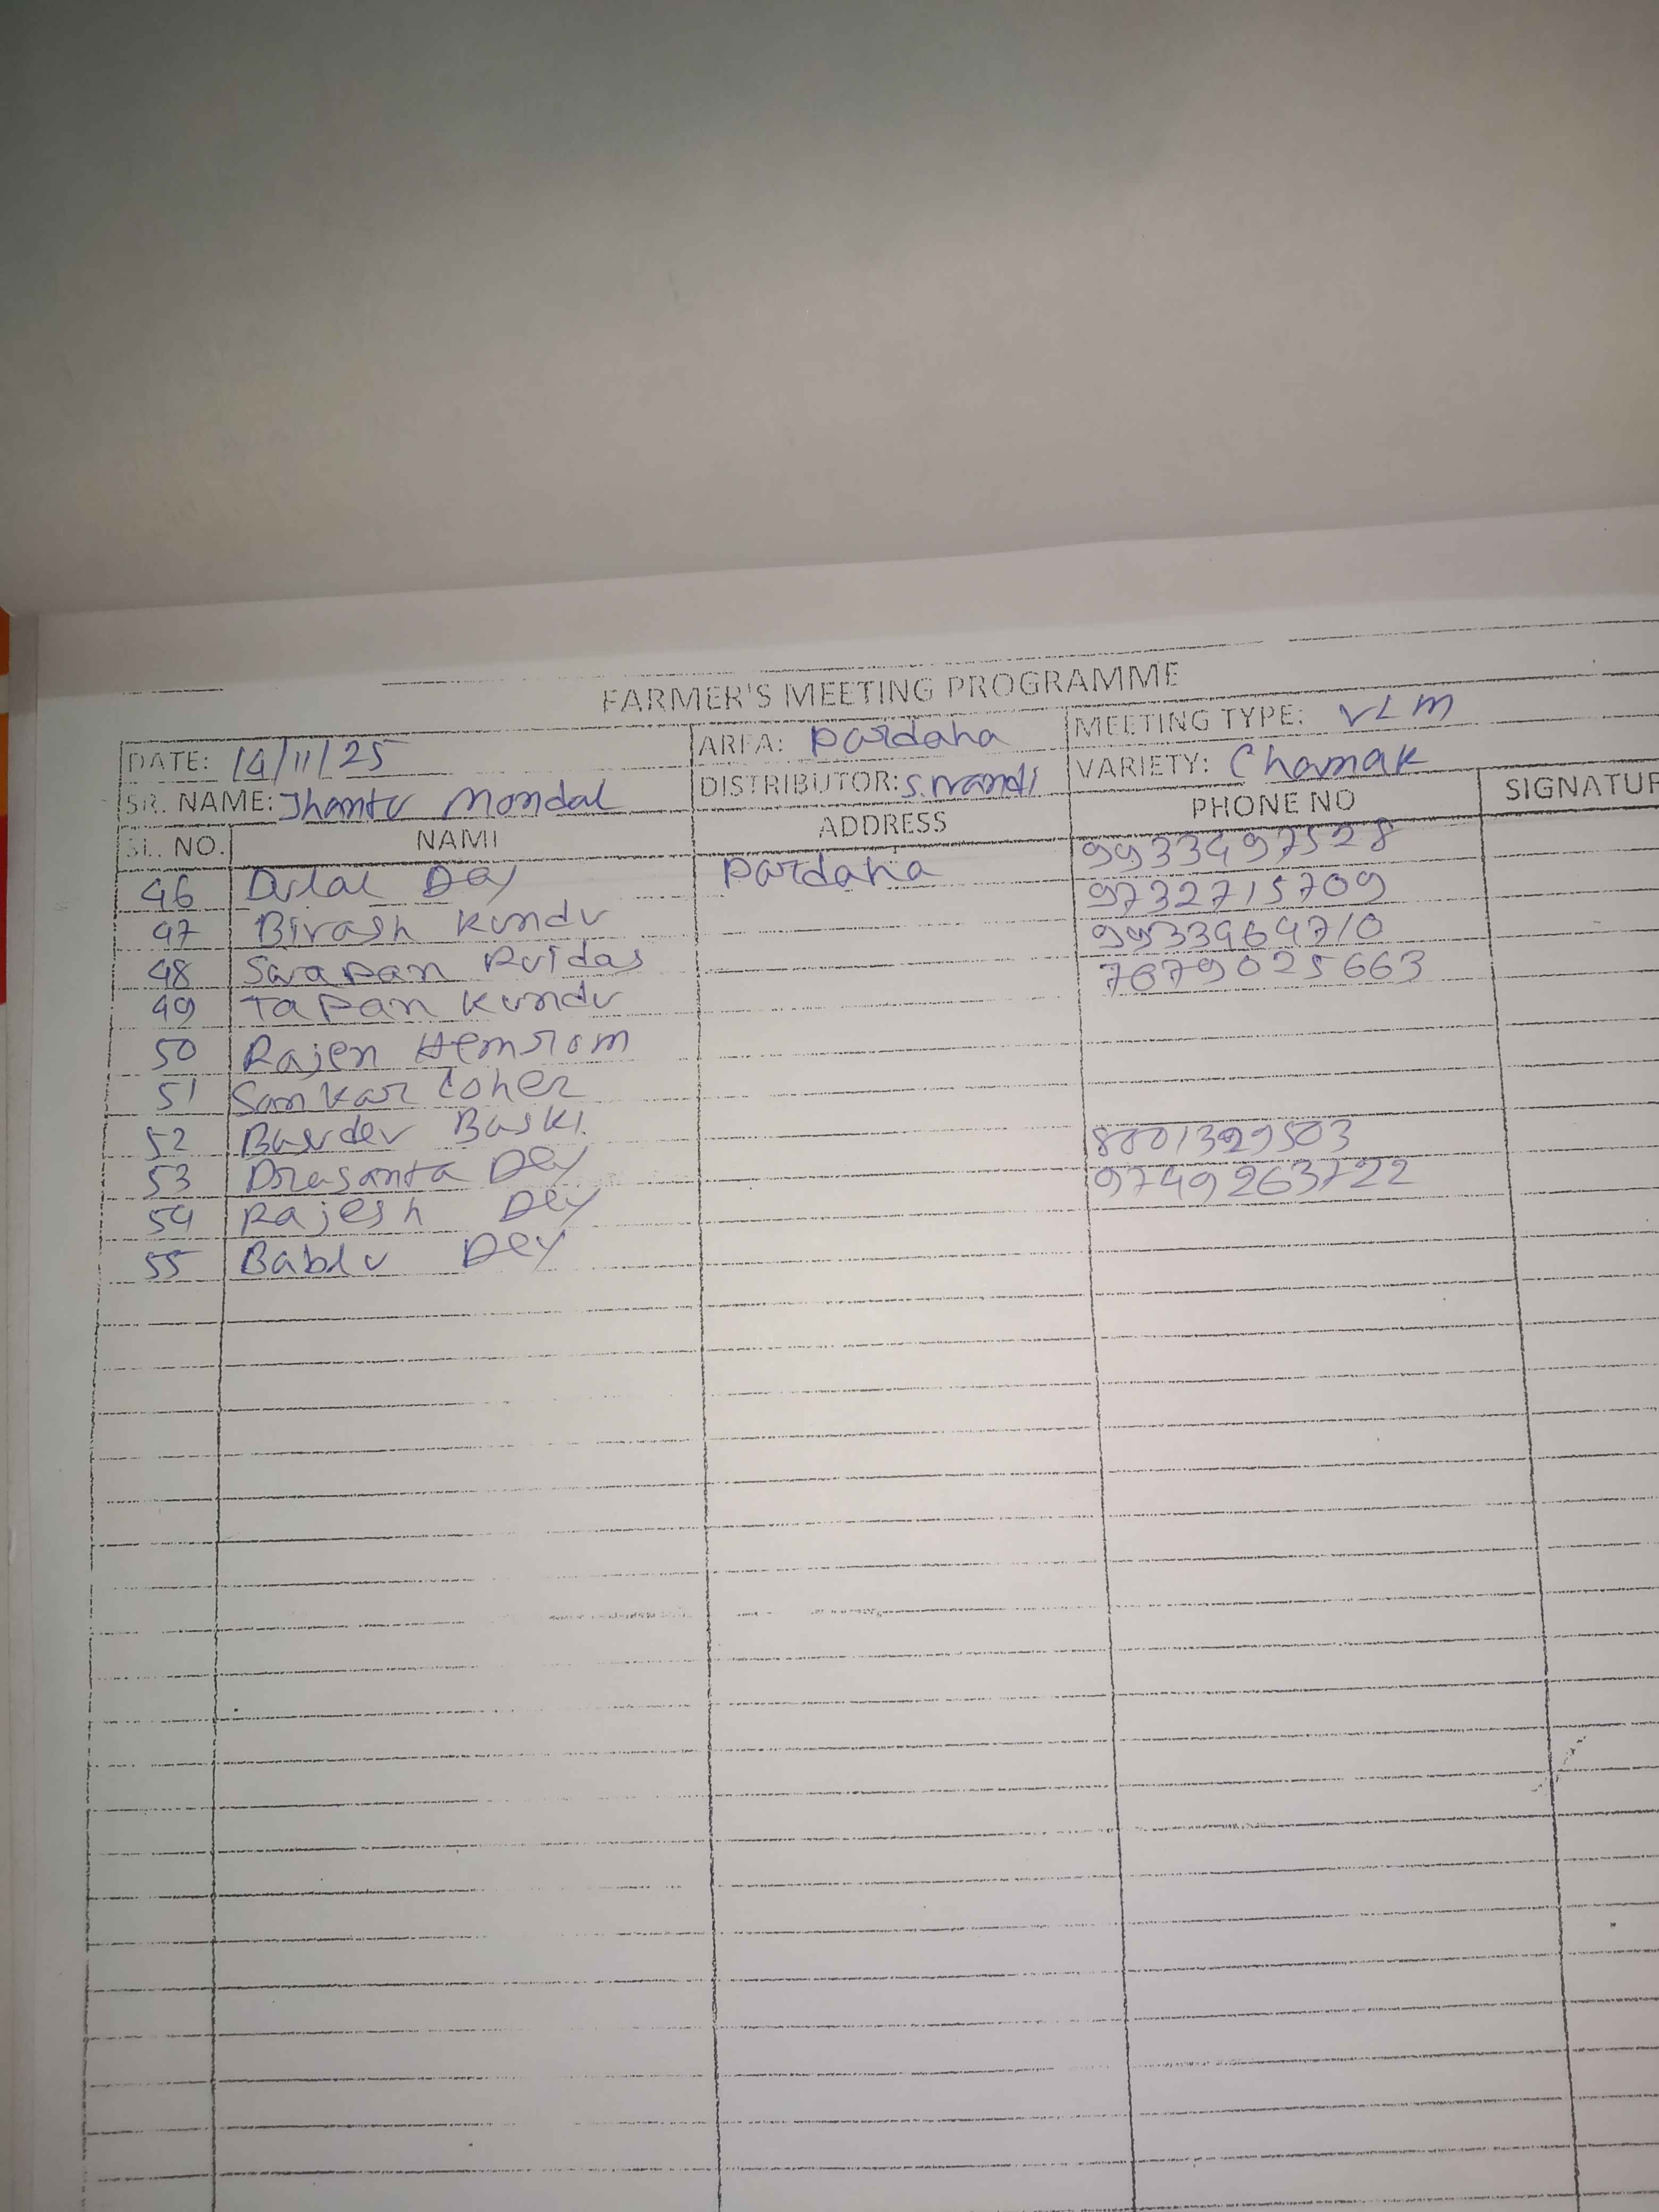 FARMER'S MEETING PROGRAMME
DATE: 14/11/25 AREA: Pardaha MEETING TYPE: VLM
SR. NAME: Jhantu Mondal DISTRIBUTOR: S. Nandi VARIETY: Chamak
SL. NO. NAME ADDRESS PHONE NO SIGNATUR
46 Dulal Dey Pardaha 9933497528
47 Bivash Kundu 9732715709
48 Swapan Ruidas 9933964710
49 Tapan Kundu 7679025663
50 Rajen Hemrom
51 Sankar
52 Basudev Baski
53 Prasanta Dey 8001399503
54 Rajesh Dey 9749263722
55 Bablu Dey